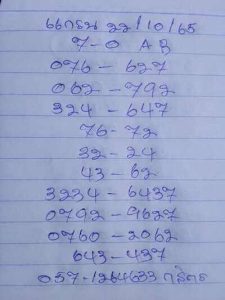 22/10/65
7-0 A B
076 - 627
062 - 792
324 - 647
76 - 72
32 - 24
43 - 62
3234 - 6437
0792 - 9627
0760 - 2062
643 - 437
057-1264633